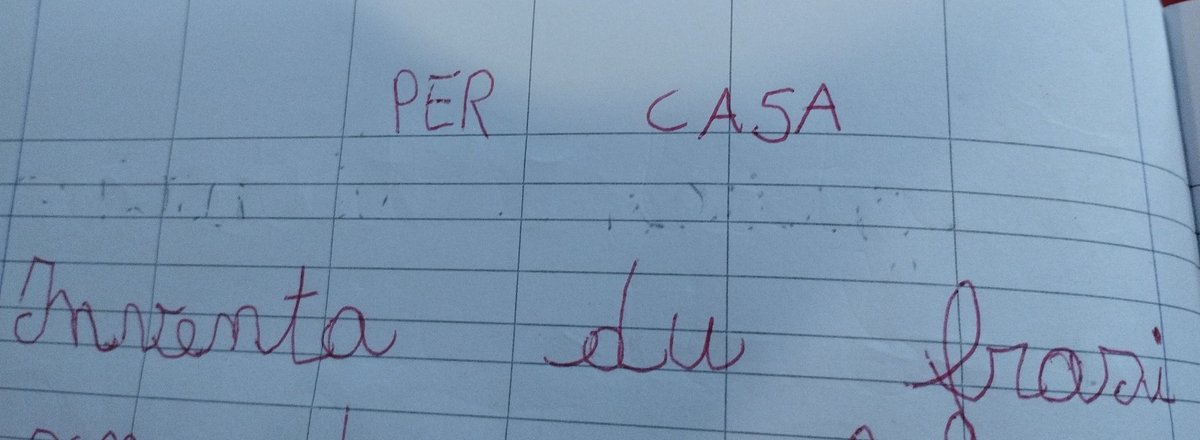 PER CASA
Inventa du frasi